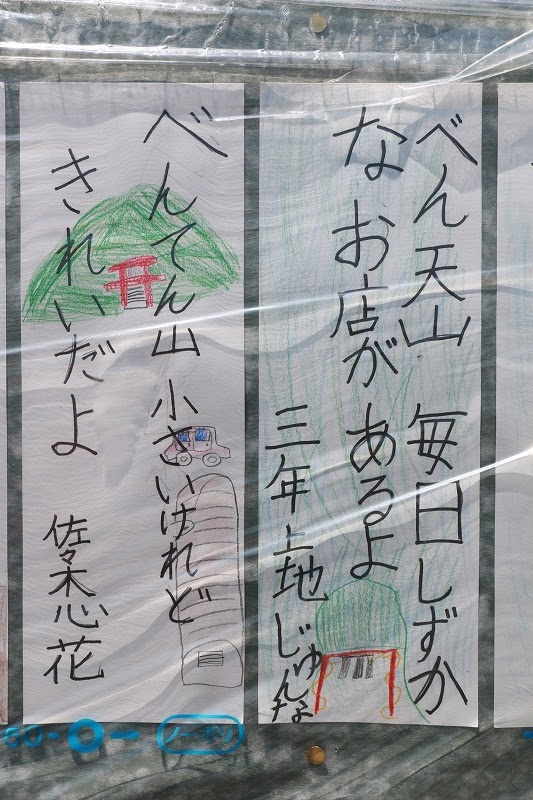 べん天山 毎日しずか
な お店が あるよ
三年 上地じゅんな
べんてん山 小さいけれど
きれいだよ
佐々木心花